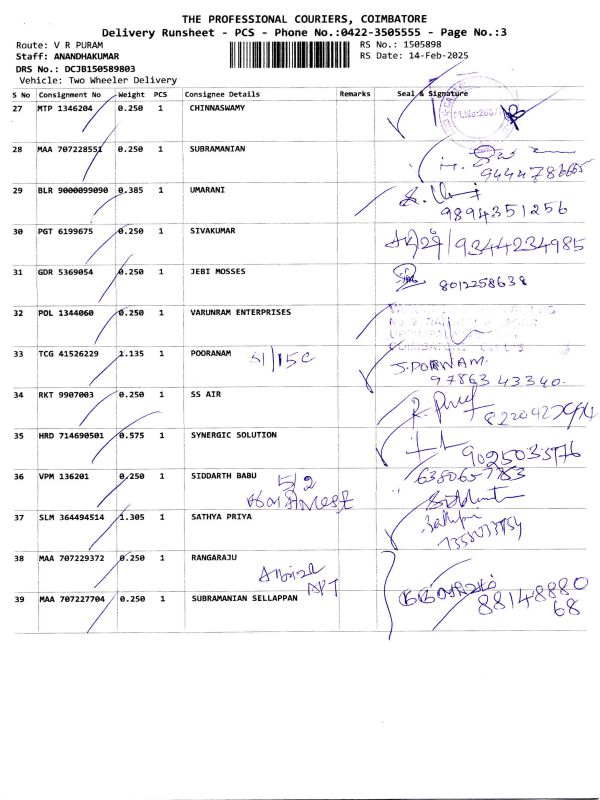 THE PROFESSIONAL COURIERS, COIMBATORE
Delivery Runsheet - PCS - Phone No.:0422-3505555 - Page No.:3
Route: V R PURAM RS No.: 1505898
Staff: ANANDHAKUMAR RS Date: 14-Feb-2025
DRS No.: DCJB150589803
Vehicle: Two Wheeler Delivery
S No Consignment No Weight PCS Consignee Details Remarks Seal & Signature
27 MTP 1346204 0.250 1 CHINNASWAMY
28 MAA 707228551 0.250 1 SUBRAMANIAN
9444786665
29 BLR 9000099090 0.385 1 UMARANI
9894351256
30 PGT 6199675 0.250 1 SIVAKUMAR 9344234985
31 GDR 5369054 0.250 1 JEBI MOSSES
8012258638
32 POL 1344060 0.250 1 VARUNRAM ENTERPRISES
33 TCG 41526229 1.135 1 POORANAM 51/15C
J.PORNAM.
97863 43340.
34 RKT 9907003 0.250 1 SS AIR
35 HRD 714690501 0.575 1 SYNERGIC SOLUTION
9025035776
36 VPM 136201 0.250 1 SIDDARTH BABU
5/2
37 SLM 364494514 1.305 1 SATHYA PRIYA
38 MAA 707229372 0.250 1 RANGARAJU
APT
39 MAA 707227704 0.250 1 SUBRAMANIAN SELLAPPAN
88148880
68